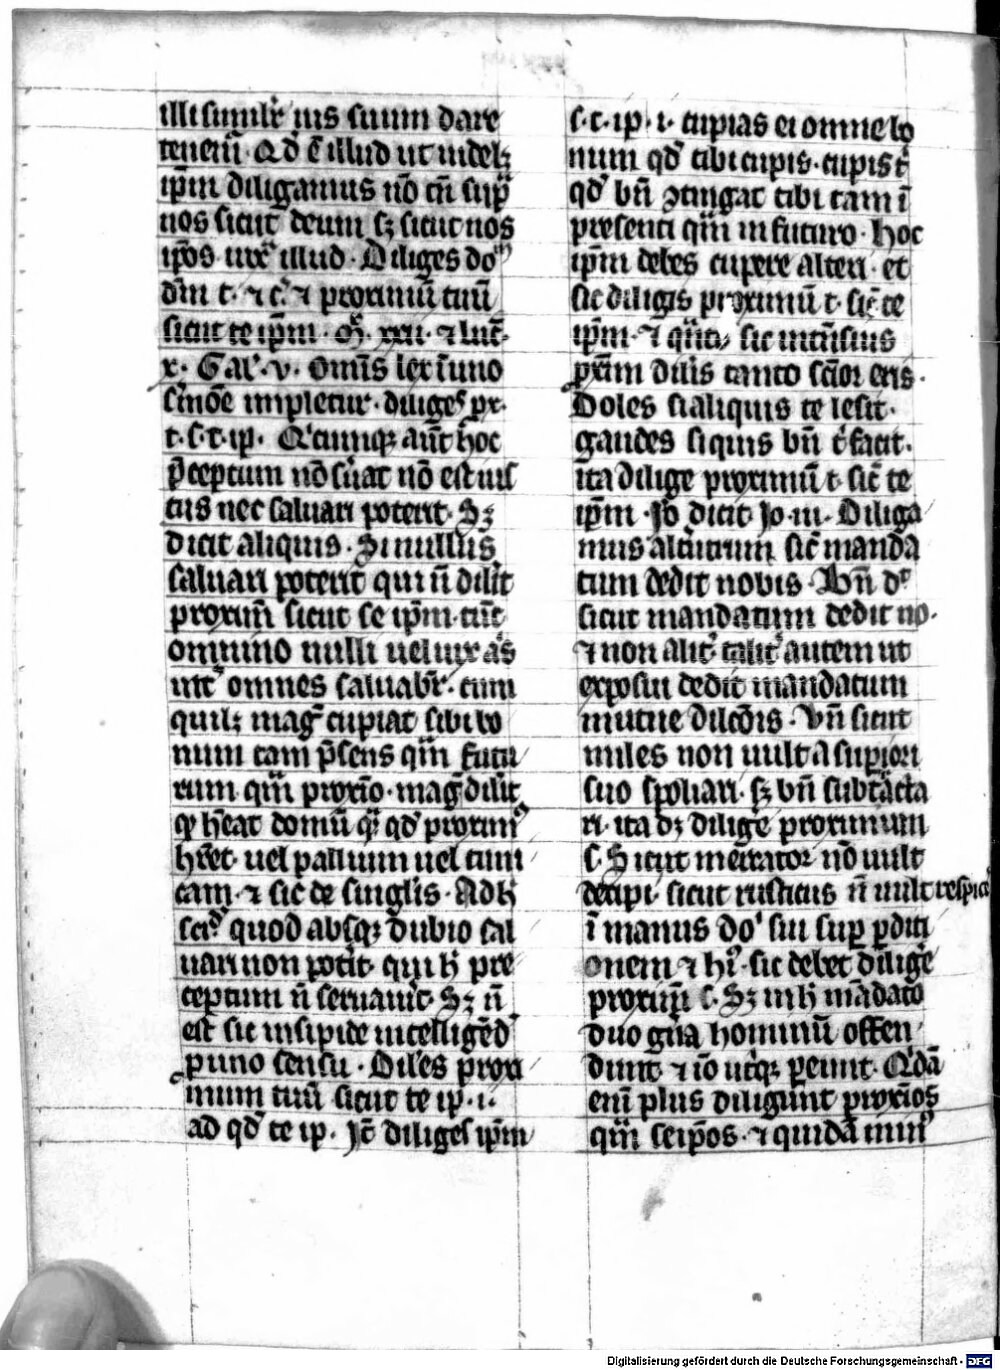 illi simil'r ius suum dare
tenem̄. Qd' ē illud ut uidelꝫ
ip̄m diligamus nō tn̄ sup̄
nos sicut deum sꝫ sicut nos
ip̄os iux̄ illud. Diliges do
dm̄ t. ⁊ c'. ⁊ proximū tuū
sicut te ip̄m. M. xxii. ⁊ luc̄.
x. Gal'. v. omīs lex ī uno
s'mōe impletur. diliges pr.
t. s. t. ip. Q'cumqꝫ aūt hoc
p̄ceptum nō s'uat nō est ius
tus nec saluari poterit. Sꝫ
dicit aliquis. Si nullus
saluari poterit qui n̄ dilit
proxim̄ sicut se ip̄m. tūc
omnino nulli uel uix
omnes saluab'r. cum
quilꝫ mag' cupiat sibi bo
num tam p̄sens qm̄ futu
rum qm̄ proxīo. mag' dilit
qꝫ h'eat domū qd' proxim'
hr̄et. uel pallium uel tuni
cam. ⁊ sic de singl'is. Ad h'
quod absqꝫ dubio sal
uari non potit. qui h' pre
ceptum n̄ seruauit. Sꝫ n̄
est sic insipide intelligēd'
puno sensu. Dil'es proxi
mum tuū sicut te ip. i.
ad qd' te ip. Ic̄ diliges ip̄m
s. t. ip. i. cupias ei omne bo
num qd' tibi cupis. cupis t'
qd' bn̄ ꝯtingat tibi tam ī
presenti qm̄ in futuro. Hoc
ip̄m debes cupere alteri. et
sic diligis proximū t. sic̄ te
ip̄m. ⁊ sic intēsius
dilis tanto sc̄ior eris.
Doles si aliquis te lesit.
gaudes si quis bn̄ t' facit.
ita dilige proximū t. sic̄ te
ip̄m. Iō dicit Jo. iii. Diliga
mus alt'utrum sic̄ manda
tum dedit nobis. Bn̄ d'r
sicut mandatum dedit no.
⁊ non alit'. talit' autem ut
exposui dedit mandatum
mutue dilc̄ōis. Vn̄ sicut
miles non uult a supiori
suo spoliari. sꝫ bn̄ subt'acta
ri. ita dꝫ dilige' proximum
s. Sicut mercator nō uult
decipi. sicut rusticus n̄ uult respic'
ī manus do' sui sup pditi
onem ⁊ hi'. sic debet dilige'
proxim̄ s. Sꝫ in h' mādato
duo gn̄a hominū offen
dunt. ⁊ iō ut'qꝫ peunt. Q'dā
enī plus diligunt proxīos
qm̄ seip̄os. ⁊ quidā min'